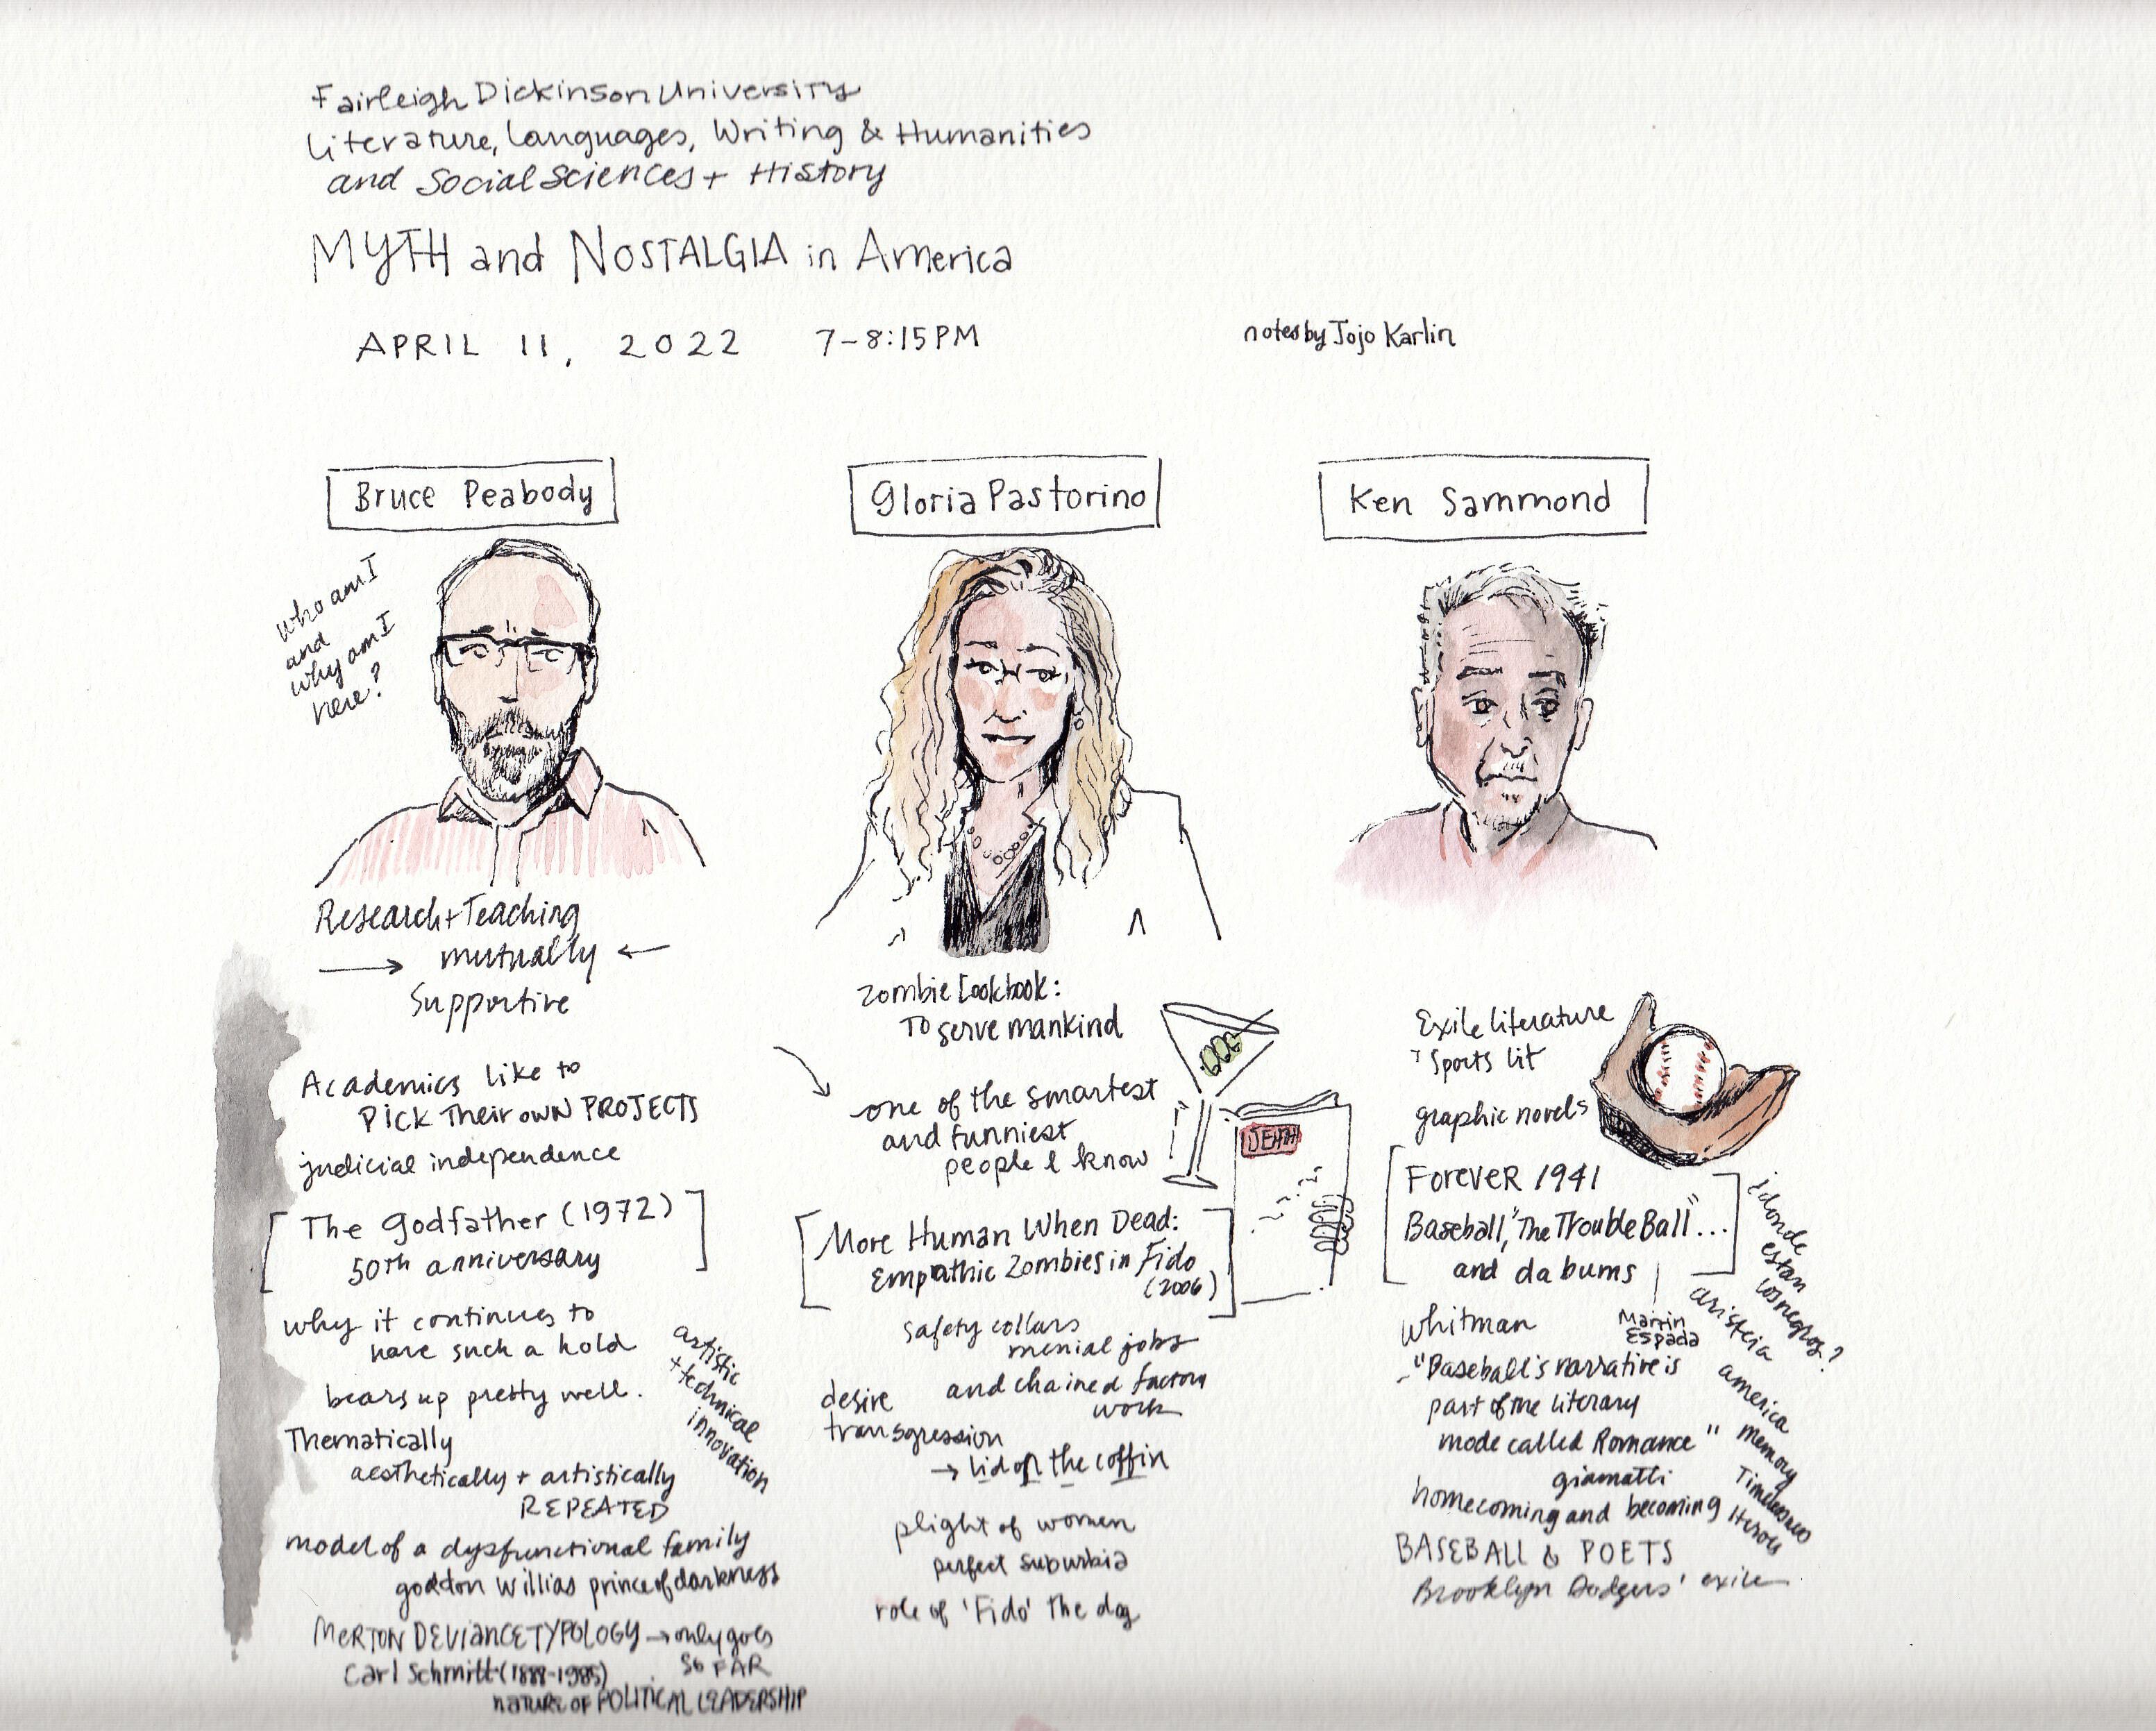 Fairleigh Dickinson University
Literature, Languages, Writing & Humanities
and Social Sciences + History
MYTH and NOSTALGIA in America
APRIL 11, 2022 7-8:15PM
notes by Jojo Karlin
Bruce Peabody
who am I
and
why am I
here?
Research + Teaching
mutually
supportive
Academics like to
PICK Their OWN PROJECTS
judicial independence
The Godfather (1972)
50th anniversary
why it continues to
have such a hold
bears up pretty well.
artistic
+ technical
innovation
Thematically
aesthetically + artistically
REPEATED
model of a dysfunctional family
gordon willias prince of darkness
MERTON DEVIANCE TYPOLOGY → only goes
SO FAR
Carl Schmitt (1888-1985)
NATURE OF POLITICAL LEADERSHIP
Gloria Pastorino
Zombie Cookbook:
To serve mankind
one of the smartest
and funniest
people I know
More Human When Dead:
Empathic Zombies in Fido
(2006)
safety collars
menial jobs
and chained factory
work
desire
transgression
→ lid off the coffin
plight of women
perfect suburbia
role of 'Fido' the dog
Ken Sammond
Exile literature
Sports lit
graphic novels
Forever 1941
Baseball, "The Trouble Ball"...
and da bums
Martin
Espada
¿donde
estan
los negros?
Whitman
"Baseball's narrative is
part of the literary
mode called Romance"
giamatti
homecoming and becoming
aristeia
america
memory
Timelessness
Heroes
BASEBALL & POETS
Brooklyn Dodgers' exile